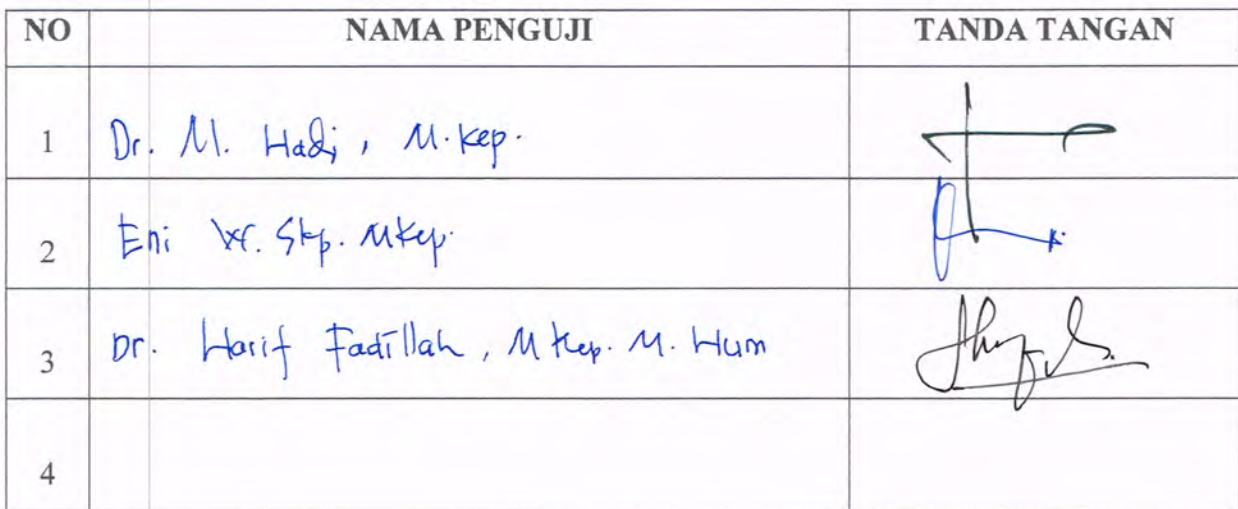 NO NAMA PENGUJI TANDA TANGAN
1 Dr. M. Hadi, M.Kep.
2 Eni W. Skp. MKep.
3 Dr. Harif Fadillah, M Kep. M. Hum
4